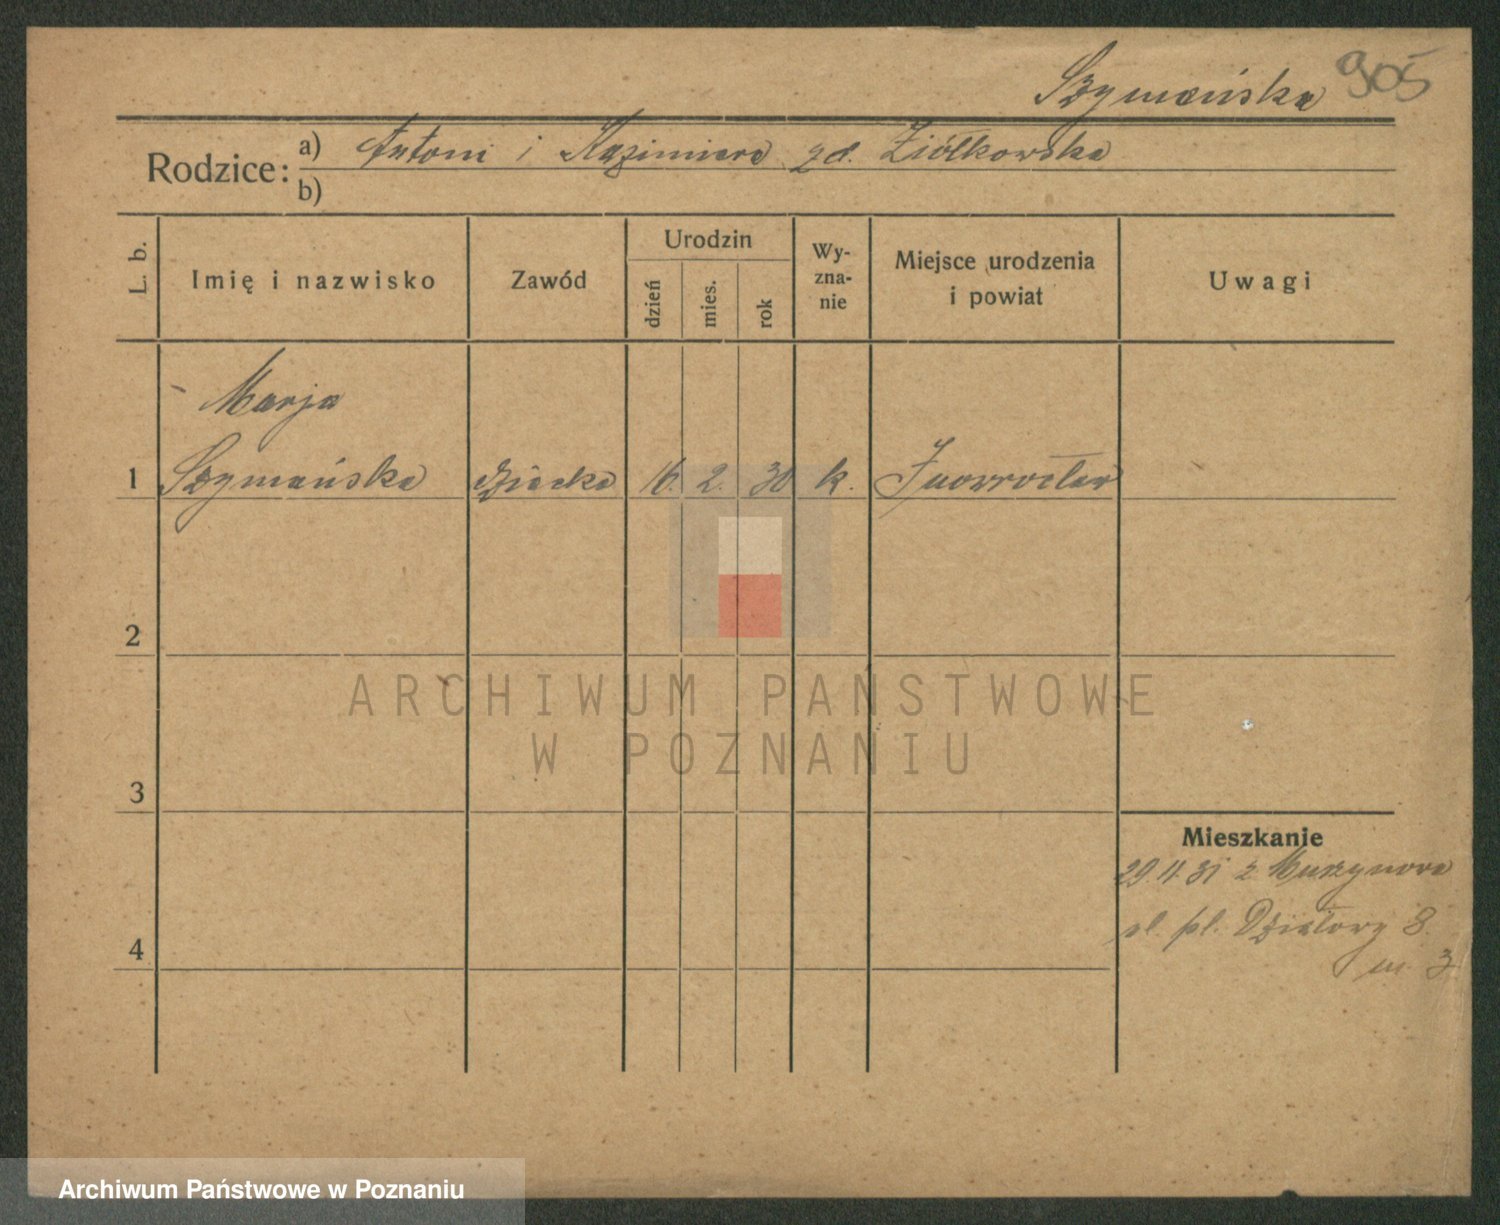 Szymańska 905
Rodzice: a) Antoni i Kazimiera zd. Ziółkowska
b)
L. b.
Imię i nazwisko
Zawód
Urodzin
dzień
mies.
rok
Wy-
zna-
nie
Miejsce urodzenia
i powiat
Uwagi
Marja
1 Szymańska dziecko 16. 2. 30 k. Inowrocław
2
3
4
Mieszkanie
29.11.31 z
pl. Działowy 8.
m 3
ARCHIWUM PAŃSTWOWE
W POZNANIU
Archiwum Państwowe w Poznaniu